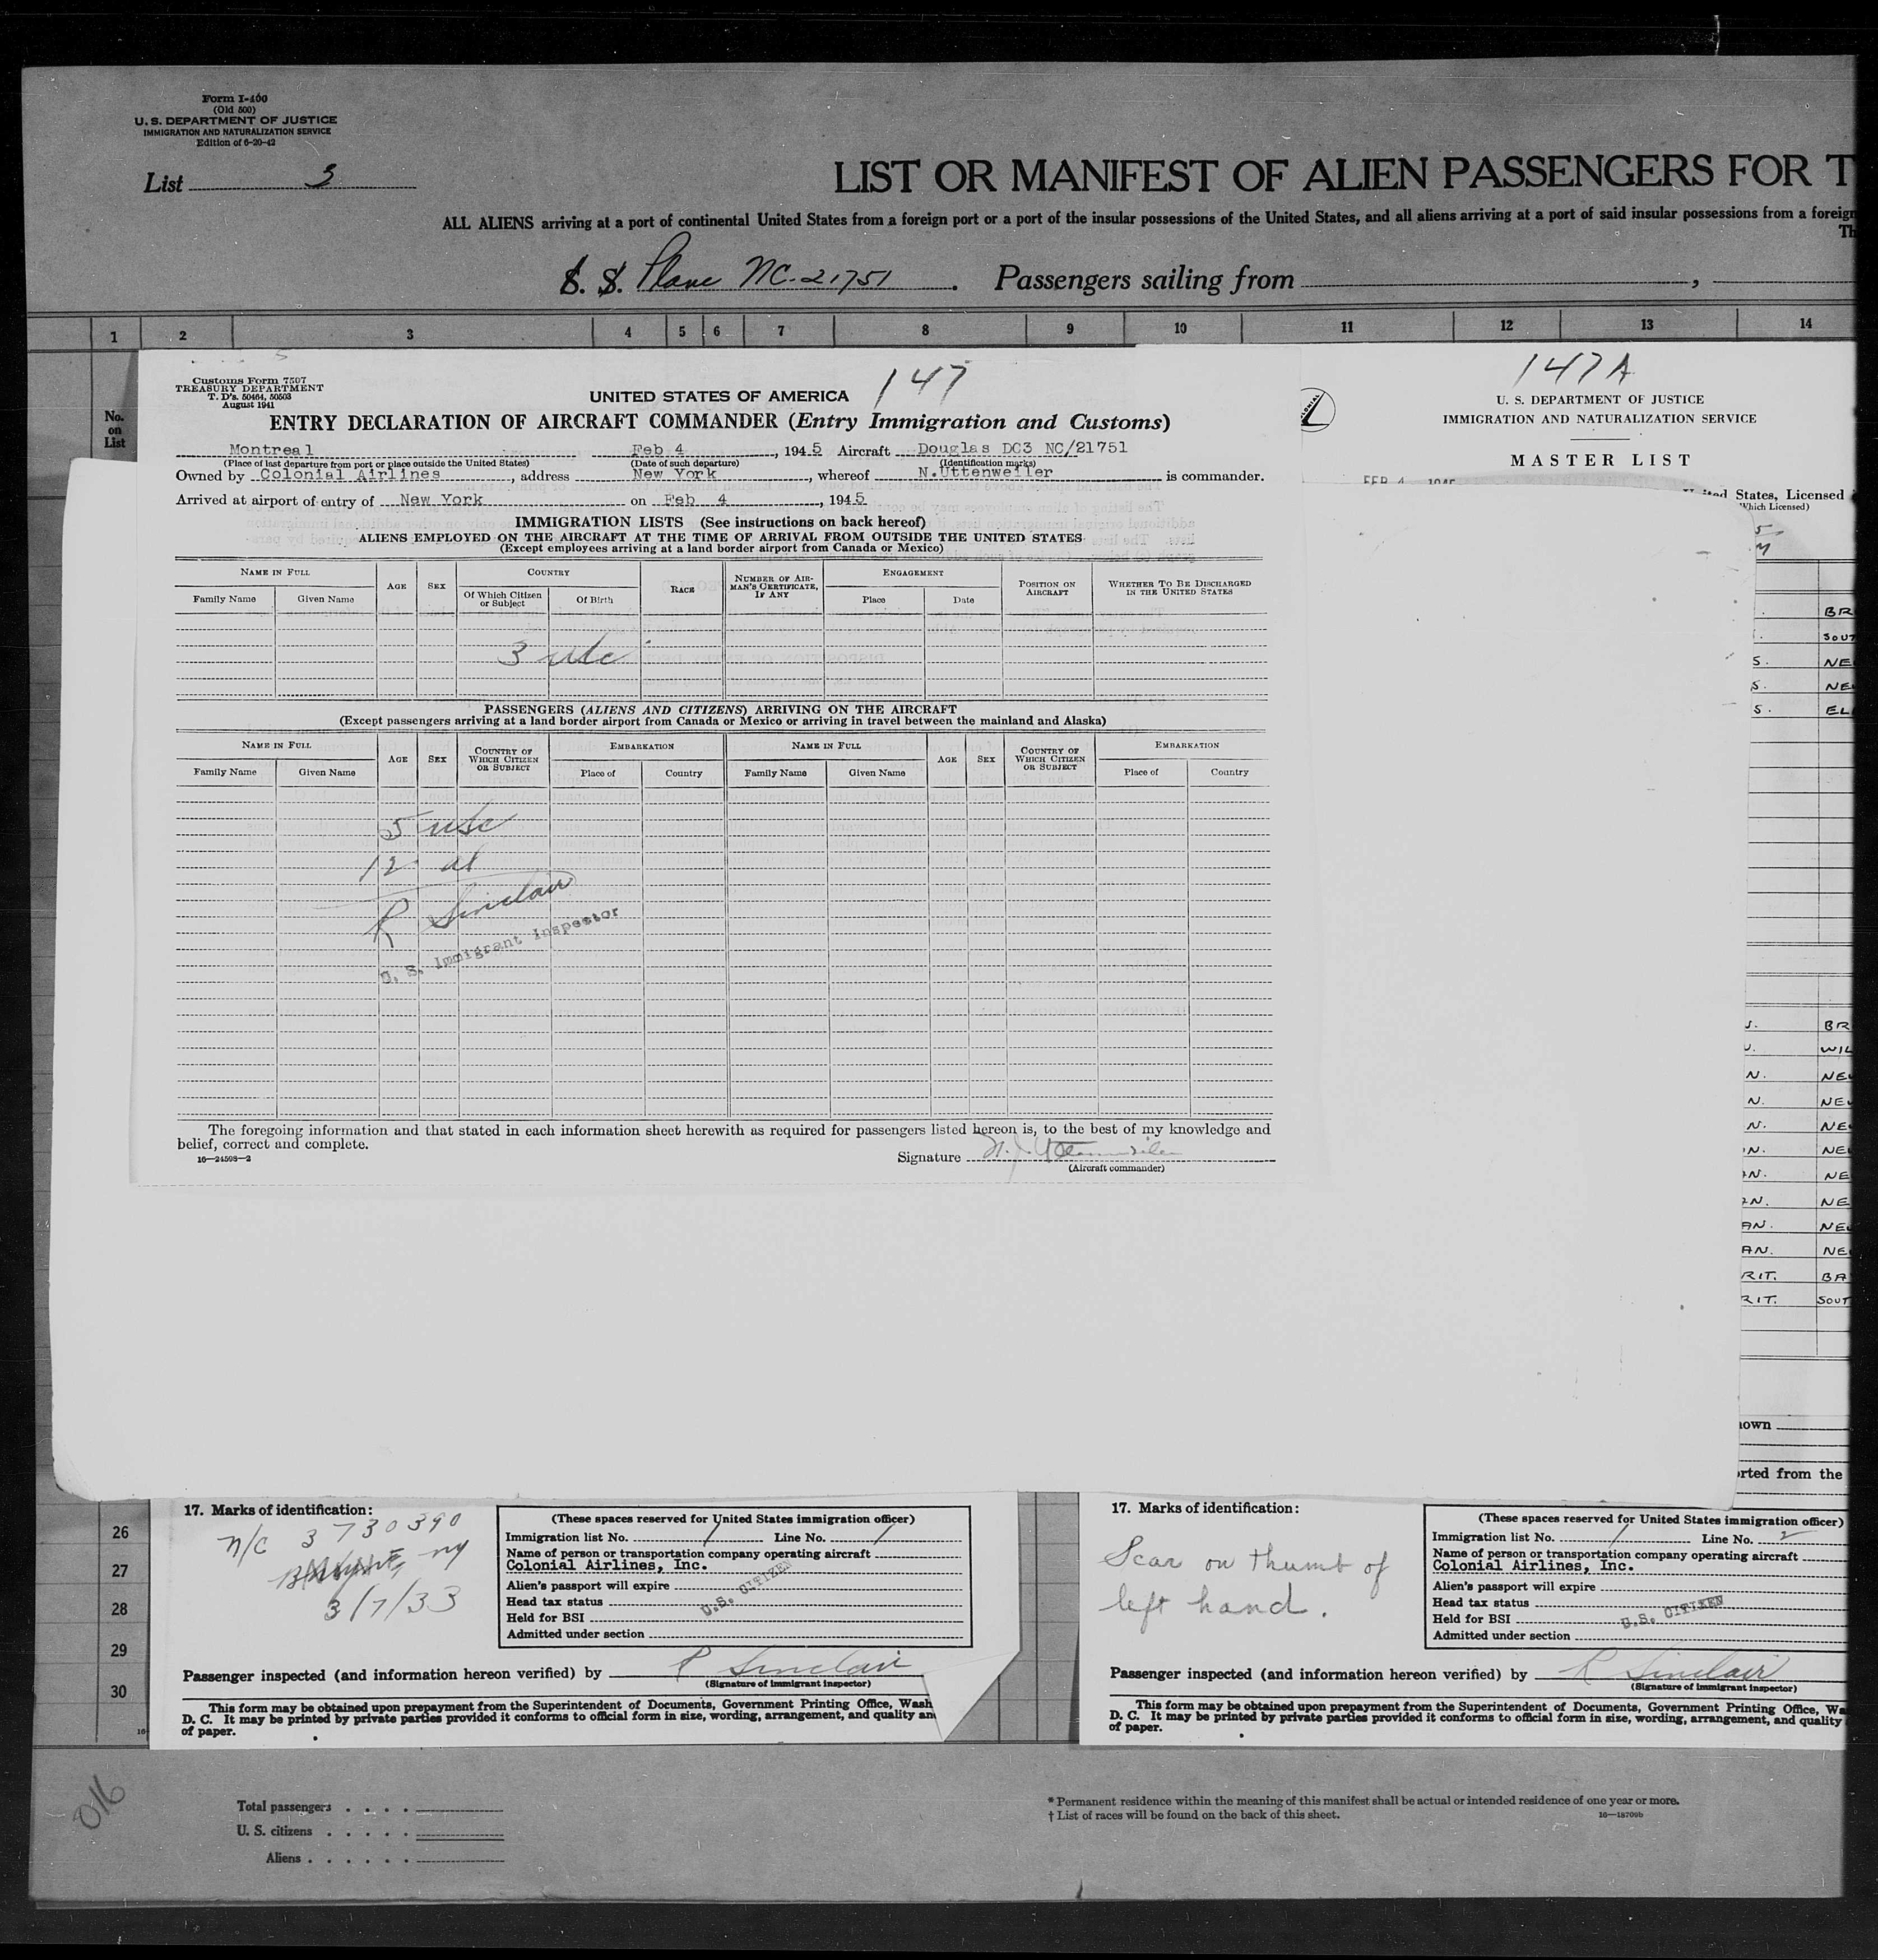 Form I-400
(Old 500)
U. S. DEPARTMENT OF JUSTICE
IMMIGRATION AND NATURALIZATION SERVICE
Edition of 6-20-42
List 3
LIST OR MANIFEST OF ALIEN PASSENGERS FOR T
ALL ALIENS arriving at a port of continental United States from a foreign port or a port of the insular possessions of the United States, and all aliens arriving at a port of said insular possessions from a foreign
Th
S. S. Plane NC-21751. Passengers sailing from
1 2 3 4 5 6 7 8 9 10 11 12 13 14
No. on List
Customs Form 7507
TREASURY DEPARTMENT
T. D's. 50464, 50503
August 1941
UNITED STATES OF AMERICA 147
ENTRY DECLARATION OF AIRCRAFT COMMANDER (Entry Immigration and Customs)
Montreal Feb 4, 1945 Aircraft Douglas DC3 NC/21751
(Place of last departure from port or place outside the United States) (Date of such departure) (Identification marks)
Owned by Colonial Airlines, address New York, whereof N.Uttenweiler is commander.
Arrived at airport of entry of New York on Feb 4, 1945
IMMIGRATION LISTS (See instructions on back hereof)
ALIENS EMPLOYED ON THE AIRCRAFT AT THE TIME OF ARRIVAL FROM OUTSIDE THE UNITED STATES
(Except employees arriving at a land border airport from Canada or Mexico)
NAME IN FULL AGE SEX COUNTRY RACE NUMBER OF AIRMAN'S CERTIFICATE, IF ANY ENGAGEMENT POSITION ON AIRCRAFT WHETHER TO BE DISCHARGED IN THE UNITED STATES
Family Name Given Name Of Which Citizen or Subject Of Birth Place Date
3 usc
PASSENGERS (ALIENS AND CITIZENS) ARRIVING ON THE AIRCRAFT
(Except passengers arriving at a land border airport from Canada or Mexico or arriving in travel between the mainland and Alaska)
NAME IN FULL AGE SEX COUNTRY OF WHICH CITIZEN OR SUBJECT EMBARKATION NAME IN FULL AGE SEX COUNTRY OF WHICH CITIZEN OR SUBJECT EMBARKATION
Family Name Given Name Place of Country Family Name Given Name Place of Country
5 usc
12 al
R Sinclair
U. S. Immigrant Inspector
The foregoing information and that stated in each information sheet herewith as required for passengers listed hereon is, to the best of my knowledge and
belief, correct and complete.
16—24598-2
Signature N. J. Uttenweiler
(Aircraft commander)
147A
U. S. DEPARTMENT OF JUSTICE
IMMIGRATION AND NATURALIZATION SERVICE
MASTER LIST
FEB 4 1945
United States, Licensed
(Which Licensed)
BR
SOUT
S. NE
S. NE
S. EL
BR
WIL
N. NE
N. NEW
N. NE
N. NE
AN. NE
AN. NE
AN. NE
AN. NE
RIT. BA
RIT. SOUT
own
rted from the
26
27
28
29
30
17. Marks of identification:
N/C 3730390
NY
3/7/33
(These spaces reserved for United States immigration officer)
Immigration list No. 1 Line No. 1
Name of person or transportation company operating aircraft
Colonial Airlines, Inc.
Alien's passport will expire
Head tax status
Held for BSI
Admitted under section
U.S. CITIZEN
Passenger inspected (and information hereon verified) by R Sinclair
(Signature of immigrant inspector)
This form may be obtained upon prepayment from the Superintendent of Documents, Government Printing Office, Wash
D. C. It may be printed by private parties provided it conforms to official form in size, wording, arrangement, and quality an
of paper.
17. Marks of identification:
Scar on thumb of
left hand.
(These spaces reserved for United States immigration officer)
Immigration list No. 1 Line No. 2
Name of person or transportation company operating aircraft
Colonial Airlines, Inc.
Alien's passport will expire
Head tax status
Held for BSI
Admitted under section
U.S. CITIZEN
Passenger inspected (and information hereon verified) by R Sinclair
(Signature of immigrant inspector)
This form may be obtained upon prepayment from the Superintendent of Documents, Government Printing Office, Wa
D. C. It may be printed by private parties provided it conforms to official form in size, wording, arrangement, and quality
of paper.
016
Total passengers
U. S. citizens
Aliens
* Permanent residence within the meaning of this manifest shall be actual or intended residence of one year or more.
† List of races will be found on the back of this sheet.
16—18709b